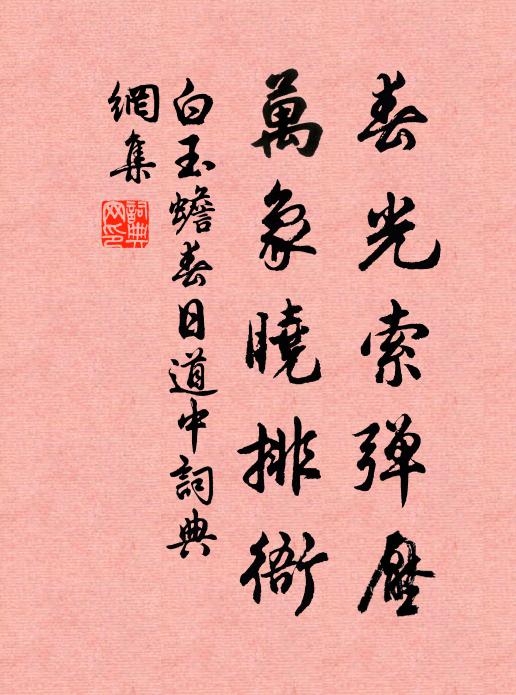 春光索弹壓
萬象曉排衙
白玉蟾春日道中詞典
網集
詞典
网印